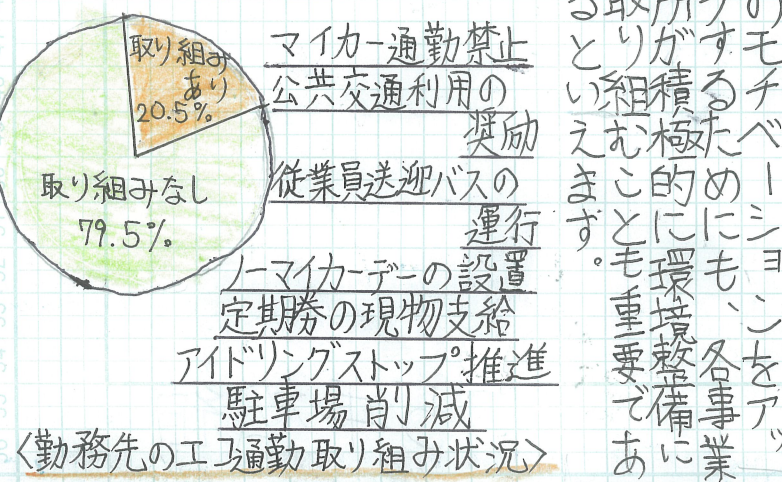 取り組み
あり
20.5%
取り組みなし
79.5%
マイカー通勤禁止
公共交通利用の
奨励
従業員送迎バスの
運行
ノーマイカーデーの設置
定期券の現物支給
アイドリングストップ推進
駐車場削減
〈勤務先のエコ通勤取り組み状況〉
のモチベーションをアッ
プするためにも、各事業
所が積極的に環境整備に
取り組むことも重要であ
るといえます。